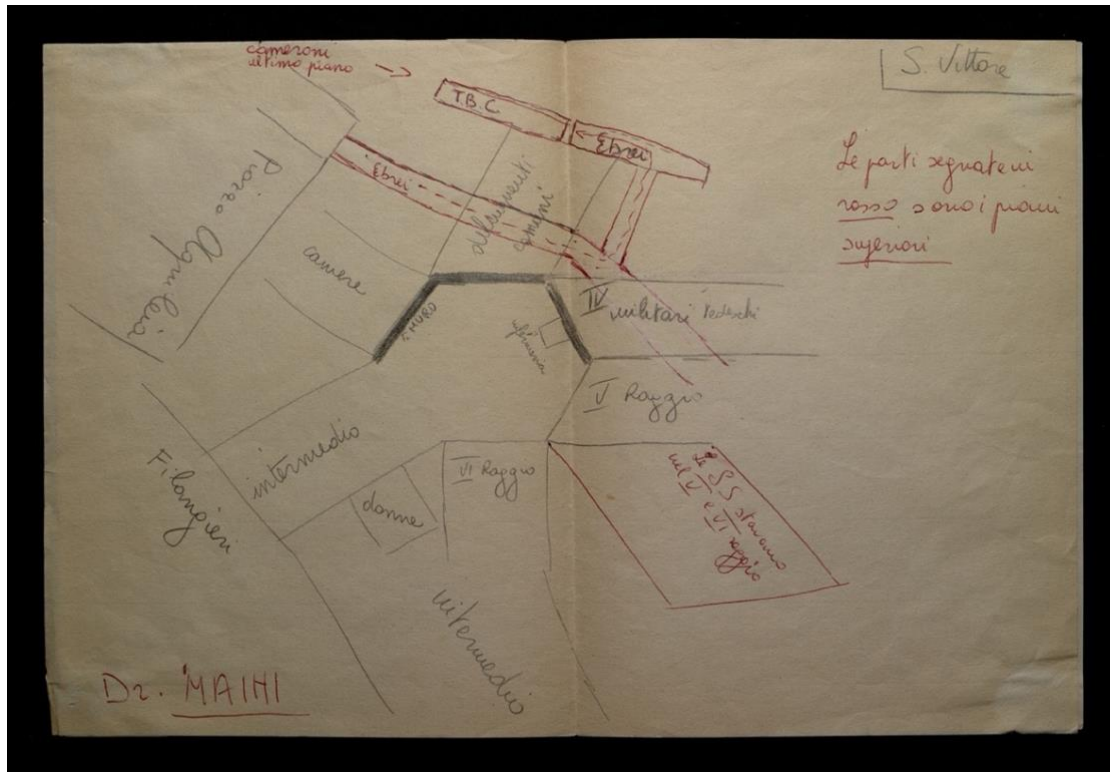 cameroni
ultimo piano
S. Vittore
T.B.C
Ebrei
Ebrei
Le parti segnate in
rosso sono i piani
superiori
Piazza Aquileia
camere
delinquenti
comuni
MURO
infermeria
IV
militari tedeschi
V Raggio
intermedio
Filangieri
donne
VI Raggio
Le SS stavano
nel V e VI raggio
intermedio
Dr. MAIHI